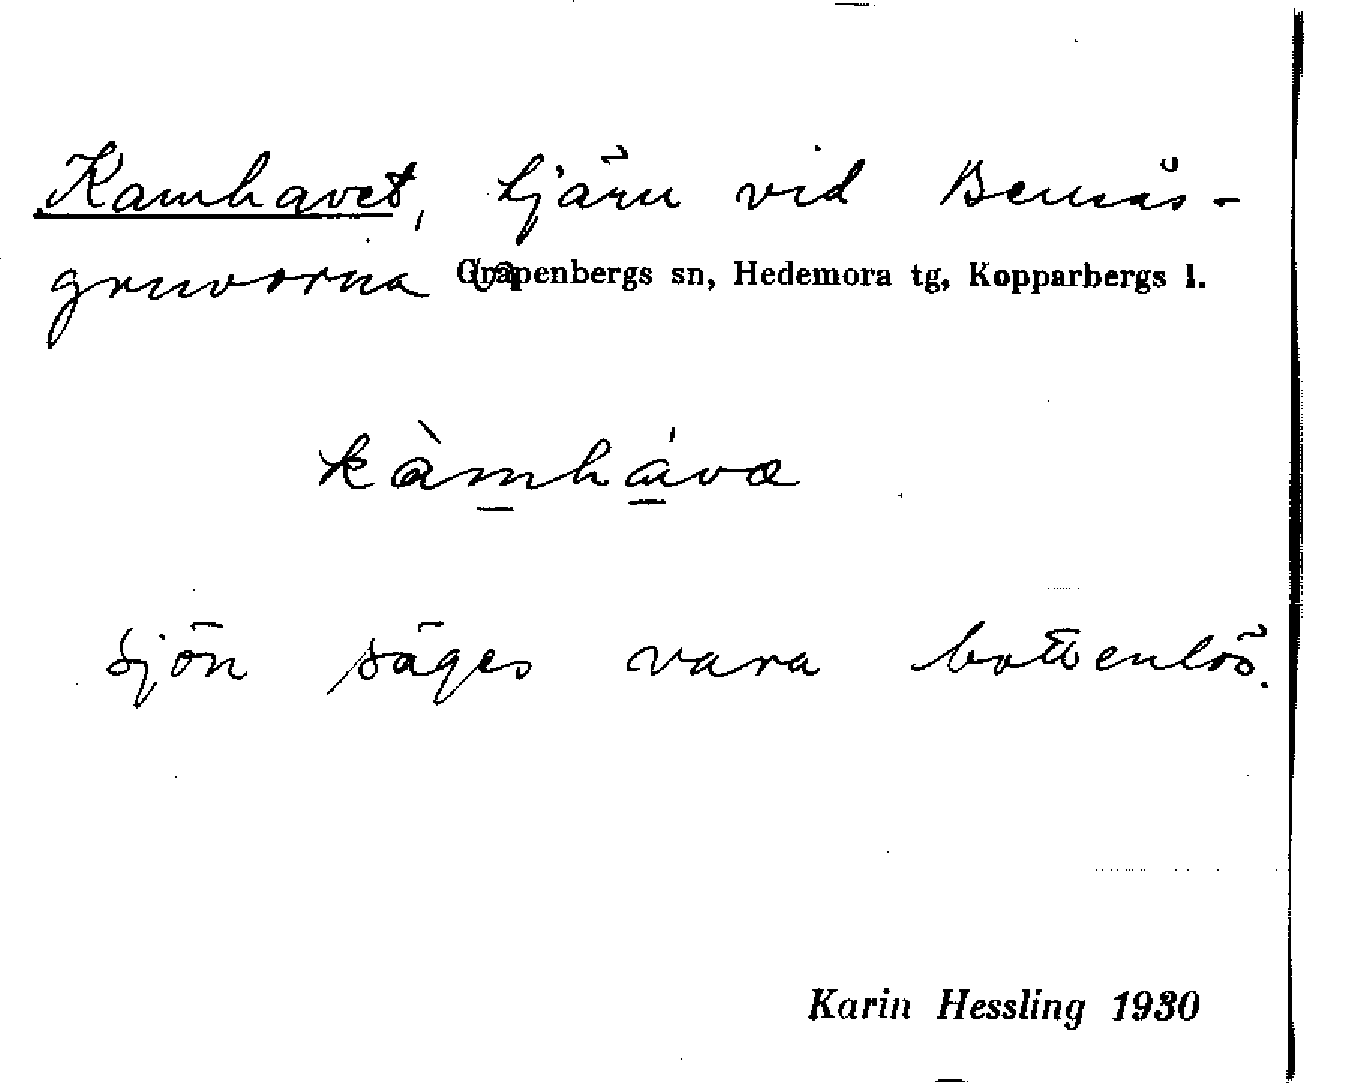 Kamhavet, tjärn vid Bernås-
gruvorna Garpenbergs sn, Hedemora tg, Kopparbergs l.
kàmháva
Sjön säges vara bottenlös.
Karin Hessling 1930